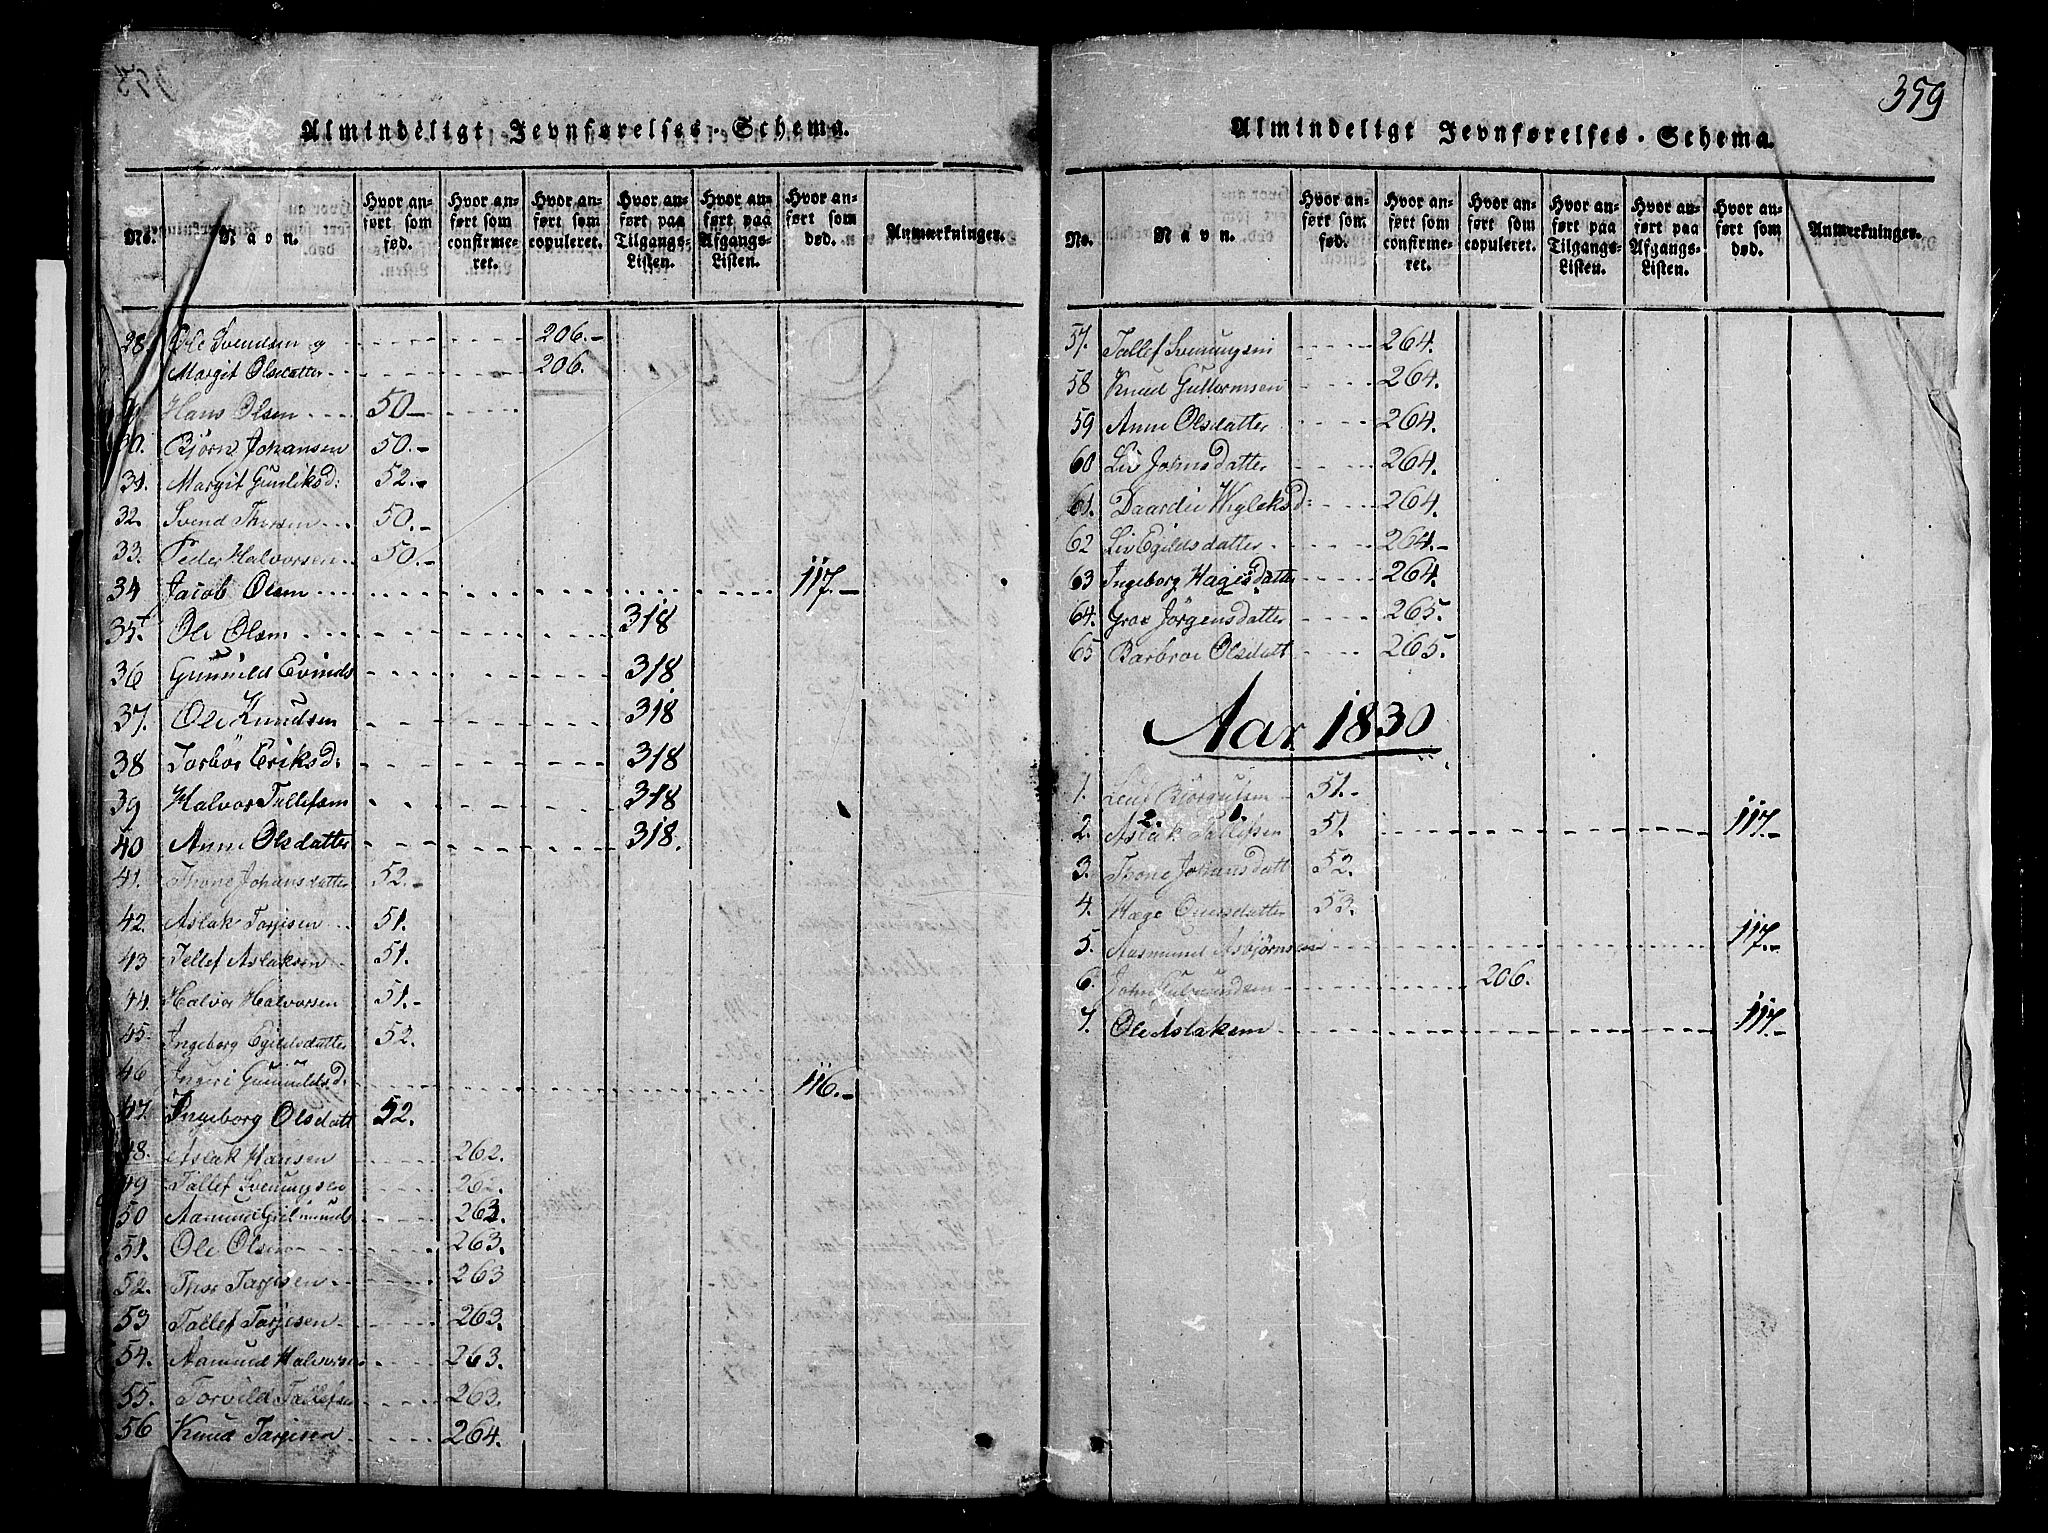 Almindeligt Jevnførelses-Schema.
No. Navn. Hvor anført som fød. Hvor anført som confirmeret. Hvor anført som copuleret. Hvor anført paa Tilgangs-Listen. Hvor anført paa Afgangs-Listen. Hvor anført som død. Anmærkninger.
28 Ole Svendsen og 206.
Margit Olsdatter 206.
29 Hans Olsen 50
30. Bjørn Johansen 50.
31. Margit Gunliksd: 52.
32. Svend 50.
33. Peder Halvorsen 50.
34 Jacob Olsen 117.
35. Ole Olsen 318
36 Gunnild Evinds 318
37. Ole Knudsen 318
38 Torbör Eriksd: 318
39 Halvor Tallefsen 318
40 Anne Olsdatter 318.
41. Thone Johansdatter 52.
42. Aslak Torjisen 51.
43 Tellef Aslaksen 51.
44. Halvor Halvorsen 51.
45. Ingeborg Egildsdatter 52.
46 Ingeri Gunnuldsd. 116.
47. Ingeborg Olsdatt 52.
48. Aslak Hansen 262.
49 Tallef Svenungsen 262.
50 Aamund 262.
51. Ole Olsen 263.
52. Thor Tarjisen 263
53 Tallef Tarjisen 263.
54. Aamund Halvorsen 263.
55. Torvild Tallefsen 263.
56 Knud Tarjisen 264.
359
Almindeligt Jevnførelses-Schema.
No. Navn. Hvor anført som fød. Hvor anført som confirmeret. Hvor anført som copuleret. Hvor anført paa Tilgangs-Listen. Hvor anført paa Afgangs-Listen. Hvor anført som død. Anmærkninger.
57. Tallef Svenungsen 264.
58 Knud Guttormsen 264.
59 Anne Olsdatter 264.
60 Liv Johnsdatter 264.
61. Daardei 264.
62 Liv Egildsdatter 264.
63 Ingeborg Hagesdatter 264.
64. Groe Jörgensdatter 265.
65 Barbroe Olsdatt 265.
Aar 1830
1. Bjørgulsen 51.
2. Aslak Tallefsen 51. 117.
3. Thone Johansdatt 52.
4. Hæge 53.
5. Aasmund Asbjørnsen 117.
6. John 206.
7. Ole Aslaksen 117.